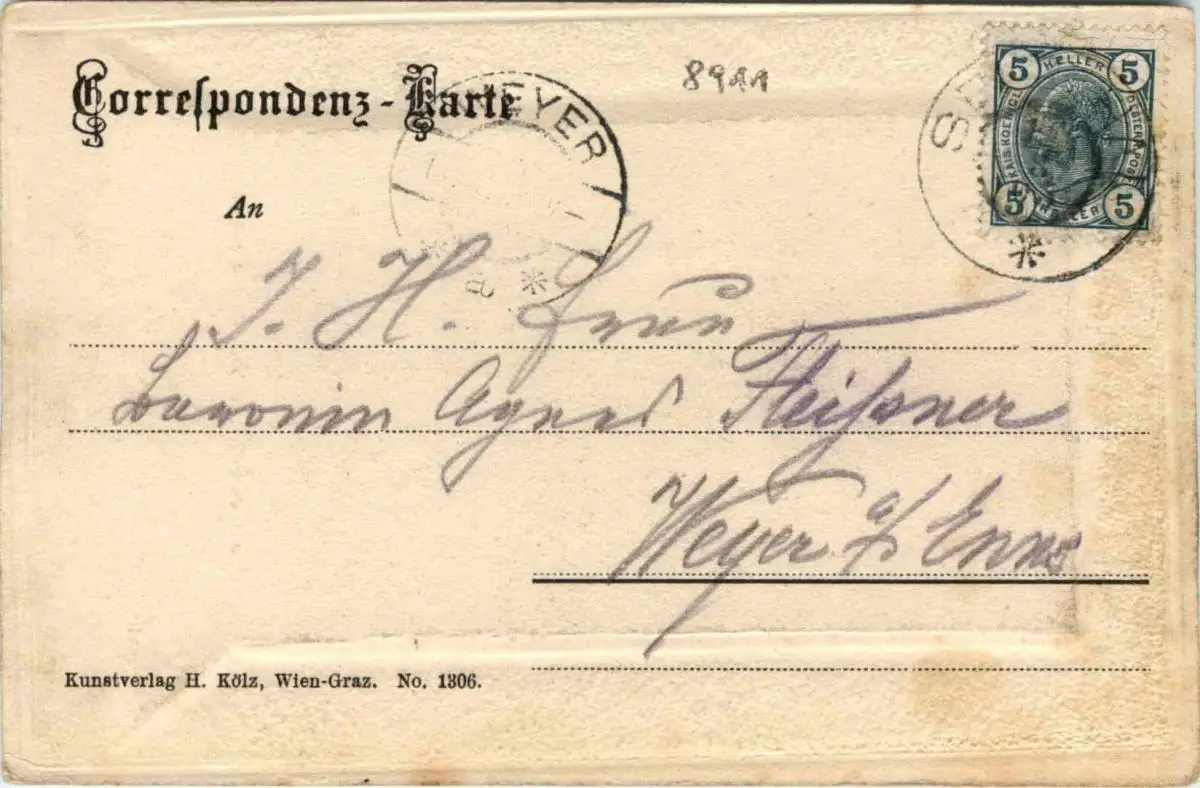 8911
Correspondenz-Karte
WEYER
5 HELLER 5
KAIS. KOENIGL. OESTERR. POST
5 HELLER 5
An
I. H. Frau
Baronin Agnes Fleißner
Weyer a/ Enns
Kunstverlag H. Kölz, Wien-Graz. No. 1306.